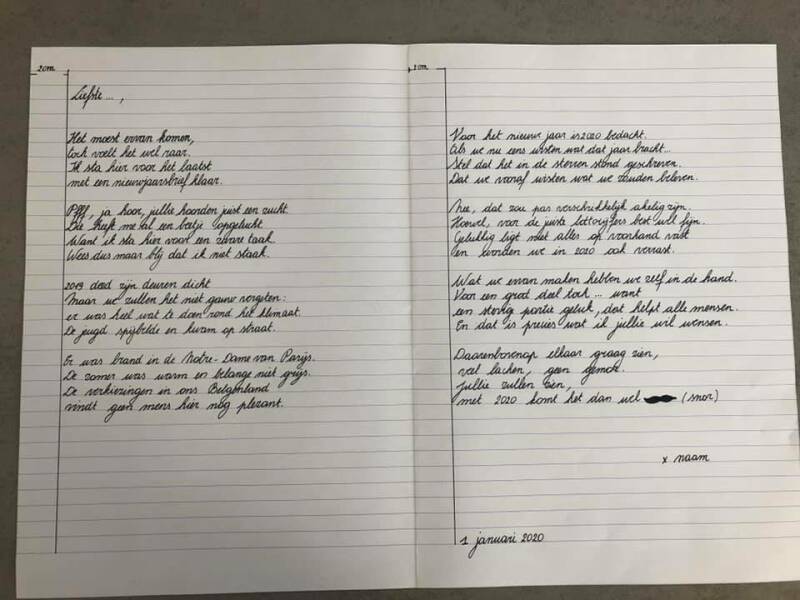 2 cm
Liefste ...,
Het moest ervan komen,
toch voelt het wel raar.
Ik sta hier voor het laatst
met een nieuwjaarsbrief klaar.
Pfff, ja hoor, jullie hoorden juist een zucht.
Die heeft me al een beetje opgelucht.
Want ik sta hier voor een zware taak.
Wees dus maar blij dat ik niet staak.
2019 deed zijn deuren dicht
Maar we zullen het niet gauw vergeten:
er was heel wat te doen rond het klimaat.
De jeugd spijbelde en kwam op straat.
Er was brand in de Notre-Dame van Parijs.
De zomer was warm en belange niet grijs.
De verkiezingen in ons Belgenland
vindt geen mens hier nog plezant.
2 cm
Voor het nieuw jaar is 2020 bedacht.
Als we nu eens wisten wat dat jaar bracht...
Stel dat het in de sterren stond geschreven.
Dat we vooraf wisten wat we zouden beleven.
Nee, dat zou pas verschrikkelijk akelig zijn.
Hoewel, voor de juiste lottocijfers best wel fijn.
Gelukkig ligt niet alles op voorhand vast
en worden we in 2020 ook verrast.
Wat we ervan maken hebben we zelf in de hand.
Voor een groot deel toch ... want
een stevige portie geluk, dat helpt alle mensen.
En dat is precies wat ik jullie wil wensen.
Daarenbovenop elkaar graag zien,
veel lachen, geen gemok.
Jullie zullen zien,
met 2020 komt het dan wel (snor)
x naam
1 januari 2020